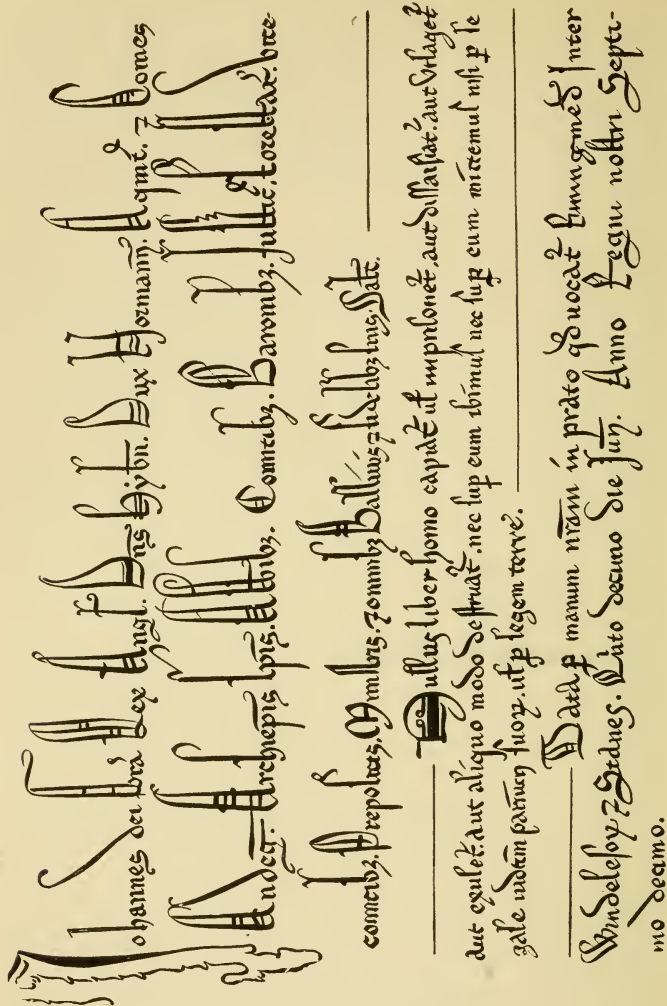 Johannes dei grã Rex Angl. Dñs Hybñ. Dux Normanñ. Aqˡuit̃. ⁊ Comes
Andeg̃. Archiep̃is Ep̃is. Abb̃ibꝫ. Comitibꝫ. Baronibꝫ. Justic̃. Forestar̃. Vice-
comitibꝫ. Prepositis. Ministris. ⁊ omnibꝫ Ballivis ⁊ fidelibꝫ suis. Salt̃.
Nullus liber homo capiat̃ uł inprisonet̃. aut dissaisiat̃. aut utlaget̃
aut exulet̃. aut aliquo modo destruat̃. nec suꝑ eum ibimus nec suꝑ eum mittemus nisi ꝑ le
gale iudicium parium suoꝝ. uł ꝑ legem terre.
Data ꝑ manum nram in prato qđ vocat̃ Runingmeđ Inter
Windelesoꝝ ⁊ Stanes. Quinto decimo die Juñ. Anno Regni nostri Septi-
mo decimo.